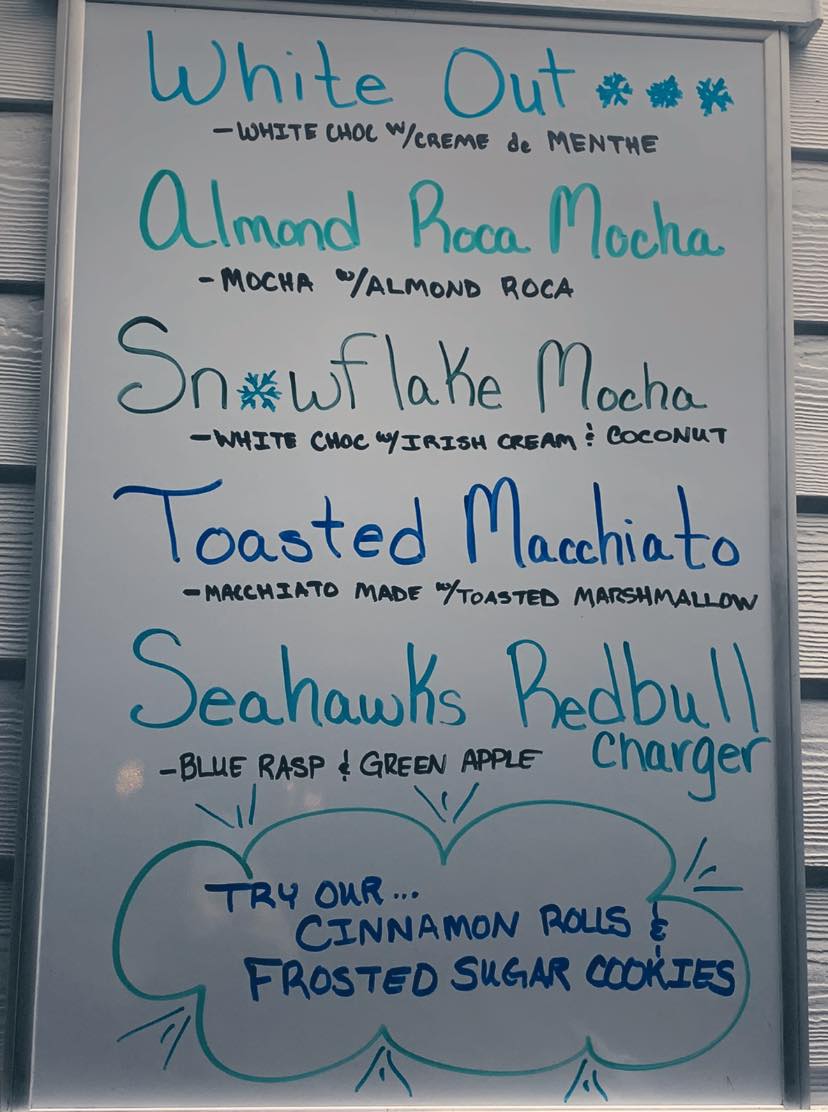 White Out
-WHITE CHOC W/CREME de MENTHE
Almond Roca Mocha
-MOCHA W/ALMOND ROCA
Snowflake Mocha
-WHITE CHOC W/IRISH CREAM & COCONUT
Toasted Macchiato
-MACCHIATO MADE W/TOASTED MARSHMALLOW
Seahawks Redbull
charger
-BLUE RASP & GREEN APPLE
TRY OUR...
CINNAMON ROLLS &
FROSTED SUGAR COOKIES